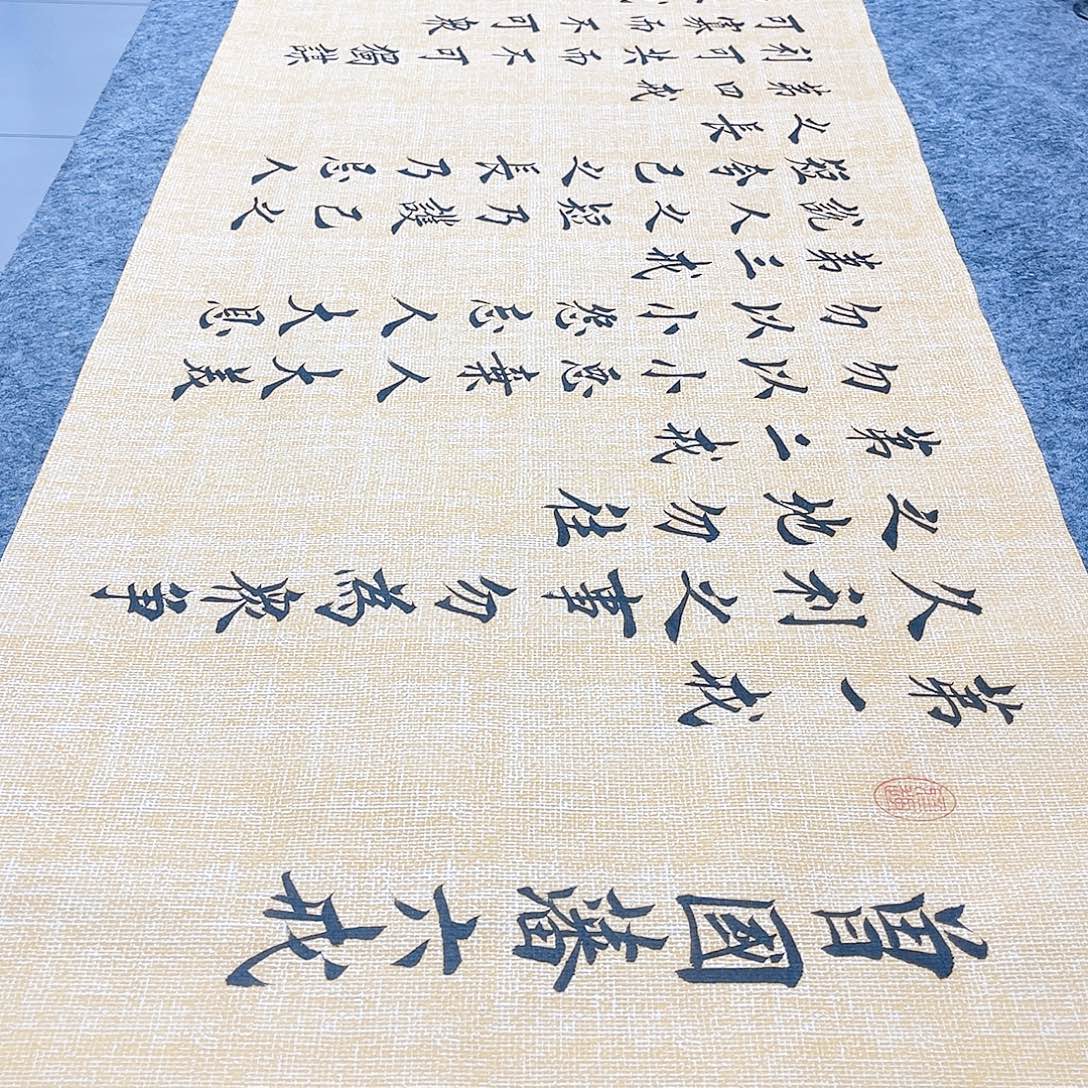 曾國藩六戒
第一戒
久利之事勿為衆爭
之地勿往
第二戒
勿以小惡棄人大美
勿以小怨忘人大恩
第三戒
說人之短乃護己之
短夸己之長乃忌人
之長
第四戒
利可共而不可獨謀
可寡而不可衆